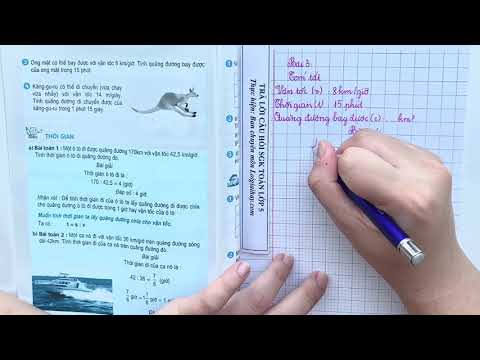 3 Ong mật có thể bay được với vận tốc 8 km/giờ. Tính quãng đường bay được
của ong mật trong 15 phút.
4 Kăng-gu-ru có thể di chuyển (vừa chạy
vừa nhảy) với vận tốc 14 m/giây.
Tính quãng đường di chuyển được của
kăng-gu-ru trong 1 phút 15 giây.
THỜI GIAN
a) Bài toán 1 : Một ô tô đi được quãng đường 170km với vận tốc 42,5 km/giờ.
Tính thời gian ô tô đi quãng đường đó.
Bài giải
Thời gian ô tô đi là :
170 : 42,5 = 4 (giờ)
Đáp số : 4 giờ.
Nhận xét : Để tính thời gian đi của ô tô ta lấy quãng đường đi được chia
cho quãng đường ô tô đi được trong 1 giờ hay vận tốc của ô tô.
Muốn tính thời gian ta lấy quãng đường chia cho vận tốc.
Ta có : t = s : v
b) Bài toán 2 : Một ca nô đi với vận tốc 36 km/giờ trên quãng đường sông
dài 42km. Tính thời gian đi của ca nô trên quãng đường đó.
Bài giải
Thời gian đi của ca nô là :
42 : 36 = 7/6 (giờ)
7/6 giờ = 1 1/6 giờ
TRẢ LỜI CÂU HỎI SGK TOÁN LỚP 5
Thực hiện: Ban chuyên môn Loigiaihay.com
Bài 3:
Tóm tắt
Vận tốc (v) : 8 km/giờ
Thời gian (t) : 15 phút
Quãng đường bay được (s) : ... km?